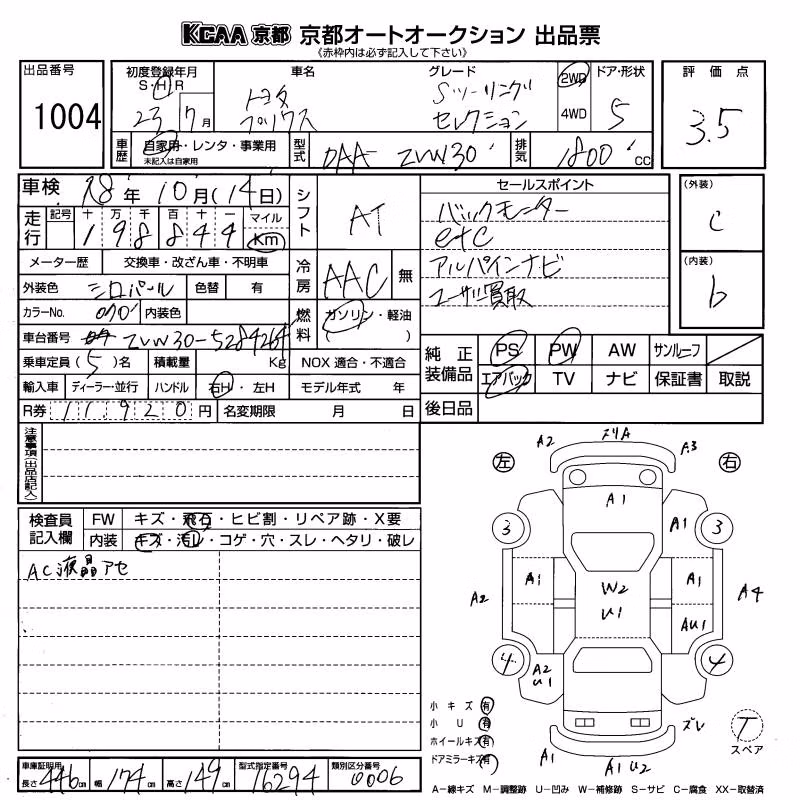 KCAA 京都 京都オートオークション 出品票
《赤枠内は必ず記入して下さい》
出品番号 初度登録年月 車名 グレード 2WD ドア・形状 評価点
S・H・R
1004 23 7月 トヨタ プリウス Sツーリング セレクション 4WD 5 3.5
車歴 自家用・レンタ・事業用 型式 DAA- ZVW30 排気 1800 CC
未記入は自家用
車検 28年10月(14日) シフト AT セールスポイント (外装)
走行 記号 十 万 千 百 十 一 マイル バックモニター c
198844 Km etc
メーター歴 交換車・改ざん車・不明車 冷房 AAC 無 アルパインナビ (内装)
外装色 シロパール 色替 有 ユーザー買取 b
カラーNo. 070 内装色 燃料 ガソリン・軽油
車台番号 ZVW30-5284264 ( )
乗車定員(5)名 積載量 Kg NOX 適合・不適合 純正装備品 PS PW AW サンルーフ
輸入車 ディーラー・並行 ハンドル 右H・左H モデル年式 年 エアバック TV ナビ 保証書 取説
R券 11,920円 名変期限 月 日 後日品
注意事項(出品店記入)
左 A2 A3 右
検査員記入欄 FW キズ・飛石・ヒビ割・リペア跡・X要
内装 キズ・汚レ・コゲ・穴・スレ・ヘタリ・破レ
AC液晶アセ
A1
3 A1 3
A2 A1 W2 U1 A1 A4
AU1
4 A2 U1 4
小キズ 有
小U 有
ホイールキズ 有
ドアミラーキズ 有
ズレ T スペア
A1 A1 U2
車庫証明用 長さ 446cm 幅 174cm 高さ 149cm 型式指定番号 16294 類別区分番号 0006
A-線キズ M-調整跡 U-凹み W-補修跡 S-サビ C-腐食 XX-取替済